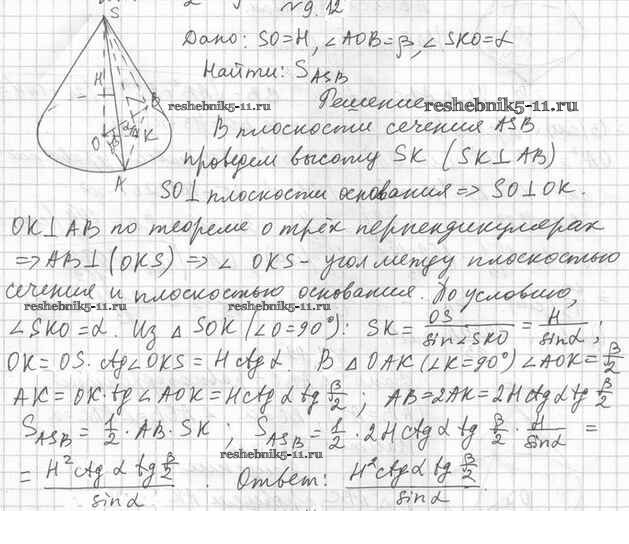 №9.12
S
Дано: SO=H, ∠AOB=β, ∠SKO=α
Найти: S_ASB
H
B
reshebnik5-11.ru
Решение
reshebnik5-11.ru
O
K
A
В плоскости сечения ASB
проведем высоту SK (SK⊥AB)
SO⊥ плоскости основания => SO⊥OK.
OK⊥AB по теореме о трёх перпендикулярах
=> AB⊥(OKS) => ∠ OKS - угол между плоскостью
сечения и плоскостью основания. По условию,
reshebnik5-11.ru
∠SKO=α. Из △ SOK (∠O=90°): SK = OS/sin∠SKO = H/sinα ;
OK = OS · ctg∠OKS = H ctg α. В △ OAK (∠K=90°) ∠AOK = β/2
AK = OK · tg ∠AOK = H ctg α tg β/2 ; AB = 2AK = 2H ctg α tg β/2
S_ASB = 1/2 · AB · SK ; S_ASB = 1/2 · 2H ctg α tg β/2 · H/sinα =
reshebnik5-11.ru
= H² ctg α tg β/2 / sinα . Ответ: H² ctg α tg β/2 / sinα .